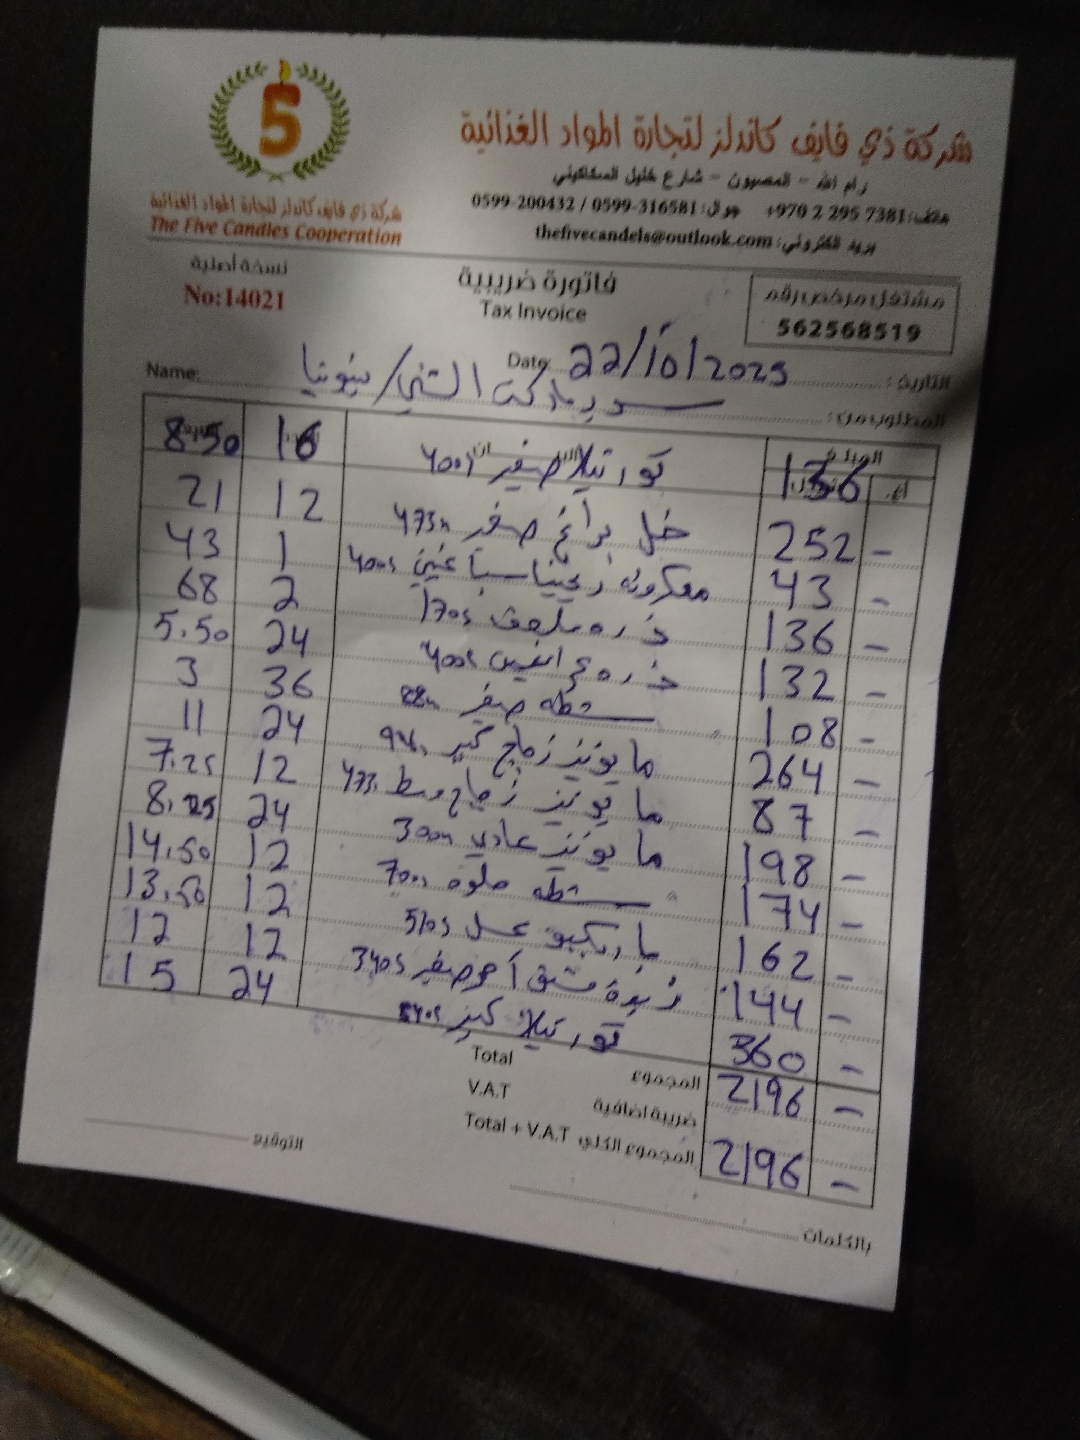 5
شركة ذي فايف كاندلز لتجارة المواد الغذائية
رام الله - المصيون - شارع خليل السكاكيني
هاتف: +970 2 295 7381 جوال: 0599-316581 / 0599-200432
بريد الكتروني: thefivecandels@outlook.com
شركة ذي فايف كاندلز لتجارة المواد الغذائية
The Five Candles Cooperation
نسخة أصلية
No:14021
فاتورة ضريبية
Tax Invoice
مشتغل مرخص رقم
562568519
التاريخ: 22/10/2025 Date:
المطلوب من: سوبر ماركت الشني/بيتونيا Name:
المبلغ
136 تورتيلا صغير 400g 16 8.50
252 - خل براغ صغير 473m 12 21
43 - معكرونة 400g 1 43
136 - ذره 170g 2 68
132 - ذره ع 400g 24 5.50
108 - شطه صغير 88m 36 3
264 - مايونيز زجاج كبير 24 11
87 - مايونيز زجاج وسط 473 12 7.25
198 - مايونيز عادي 300m 24 8.25
174 - شطه حلوه 700g 12 14.50
162 - باربكيو عسل 510g 12 13.50
144 - زبدة فستق صغير 340g 12 12
360 - تورتيلا كبير 24 15
2196 - المجموع Total
ضريبة اضافية V.A.T
2196 - المجموع الكلي Total + V.A.T
التوقيع
بالكلمات